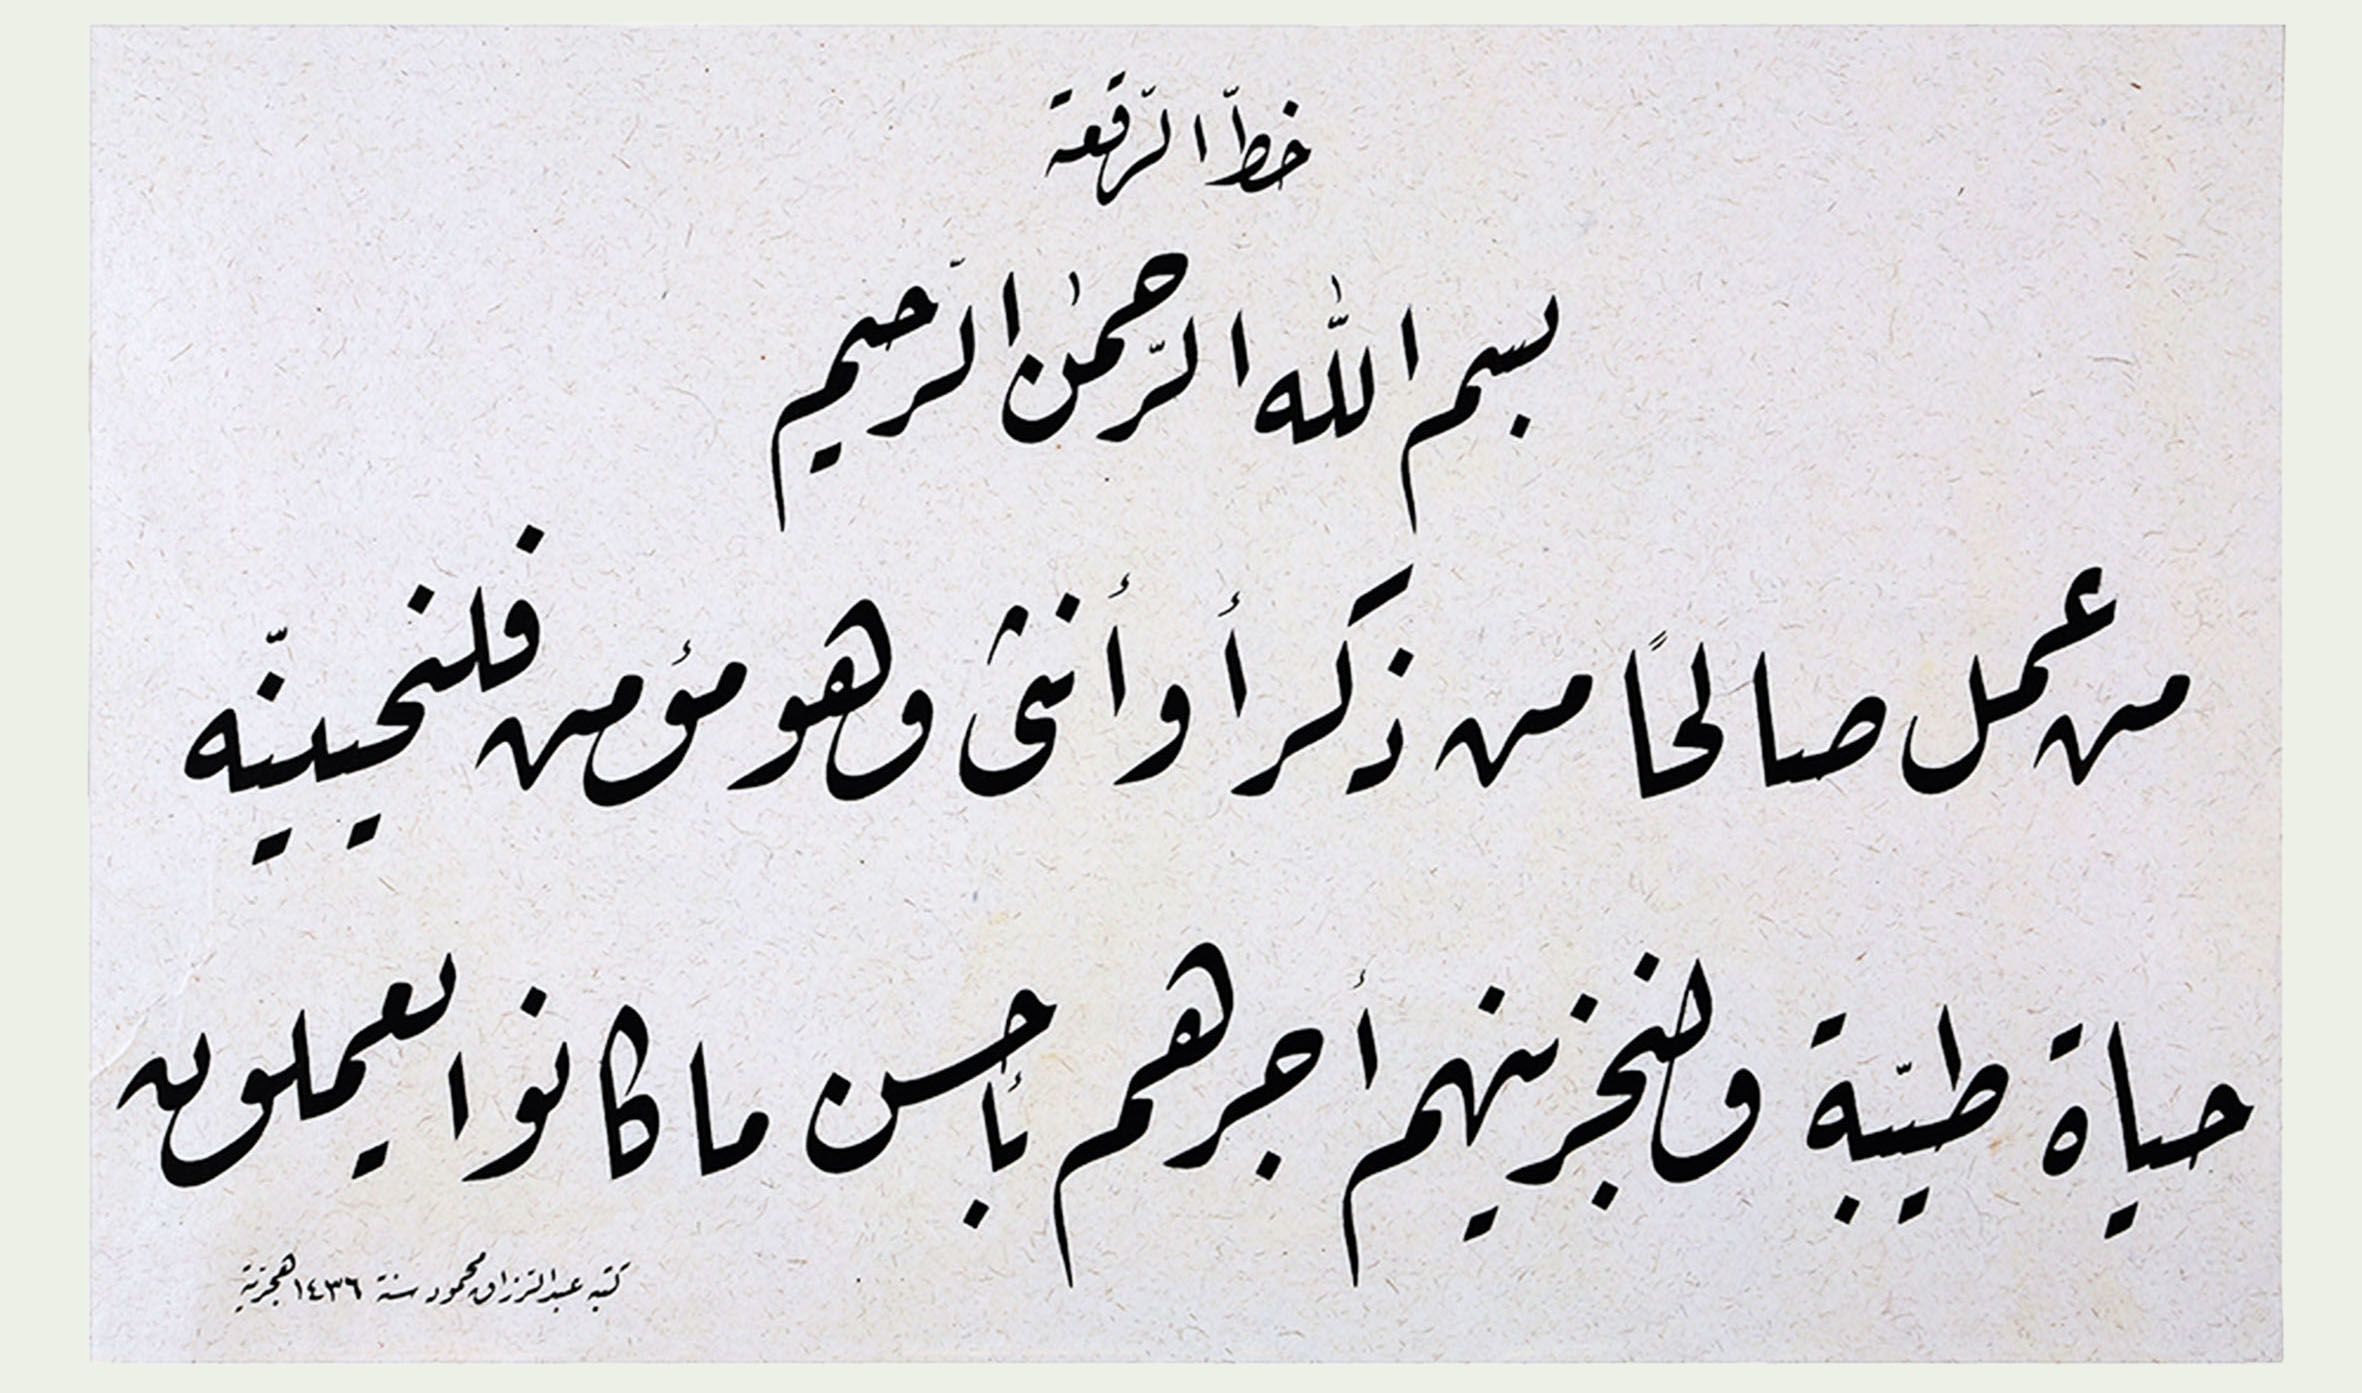 خطّ الرّقعة
بسم اللّٰه الرّحمٰن الرّحيم
من عمل صالحًا من ذكر أو أنثى وهو مؤمن فلنحيينّه
حياة طيّبة ولنجزينهم أجرهم بأحسن ما كانوا يعملون
كتبه عبدالرزاق محمود سنة ١٤٣٦ هجرية